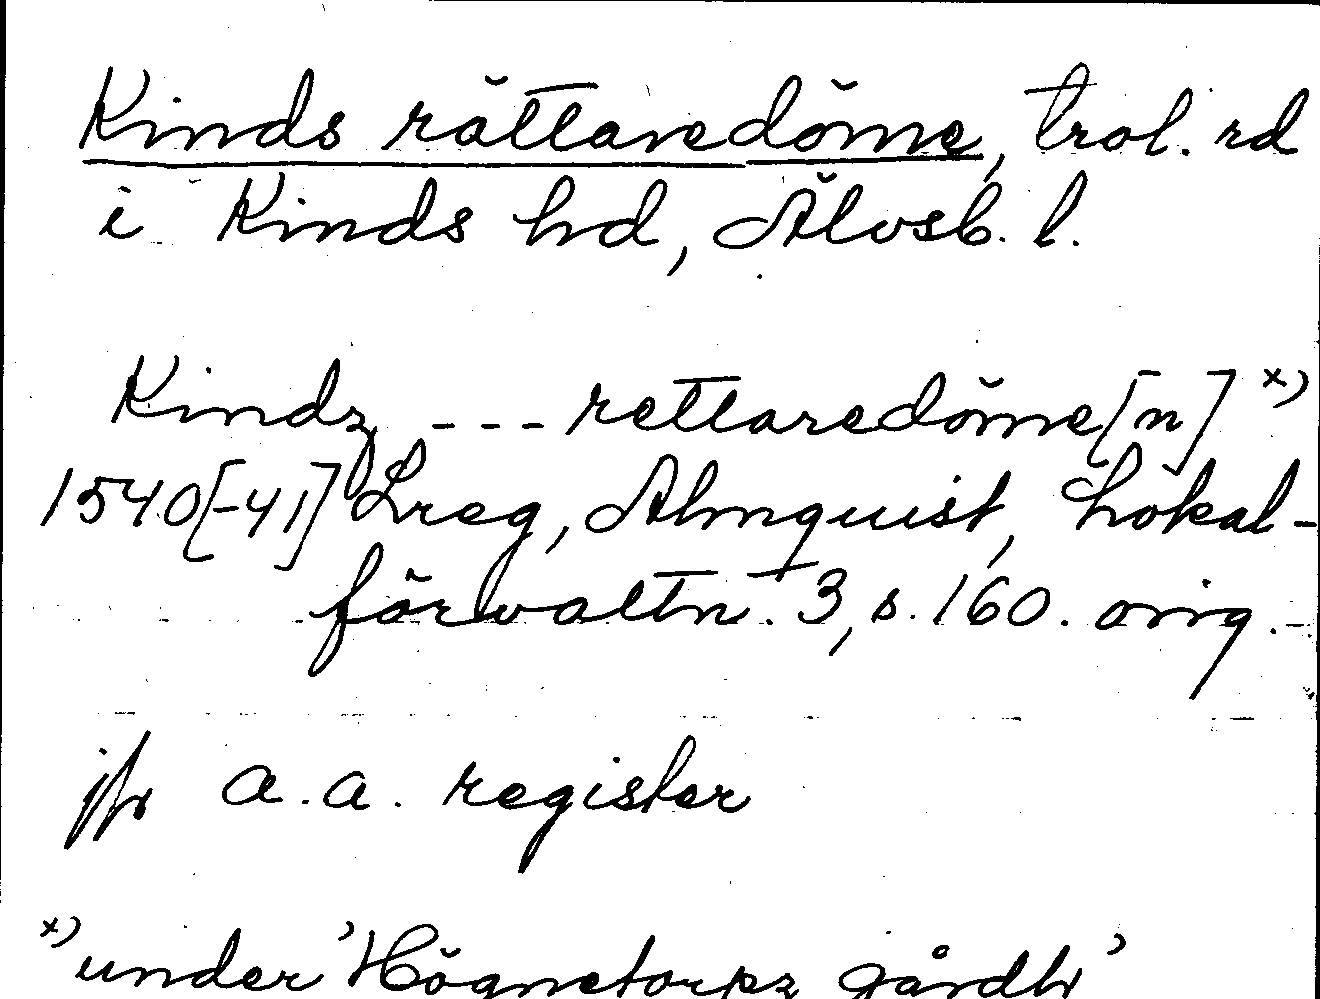 Kinds rättaredöme, trol. rd
i Kinds hd, Älvsb. l.
Kindz --- rettaredöme[n] x)
1540[-41] Lreg, Almquist, Lokal-
förvaltn. 3, s. 160. orig.
jfr a.a. register
x) under 'Högnetorpz gårdh'